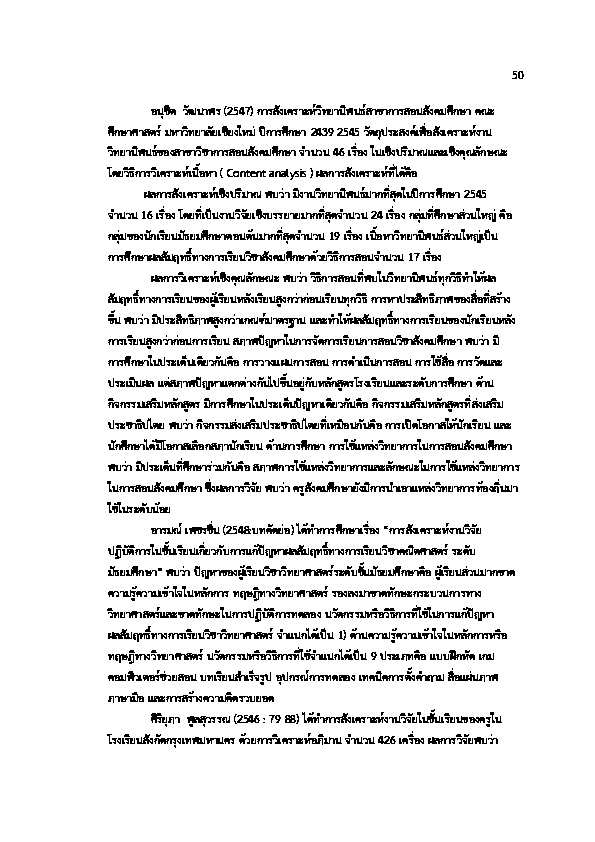 50
อนุชิต วัฒนาพร (2547) การสังเคราะห์วิทยานิพนธ์สาขาการสอนสังคมศึกษา คณะ
ศึกษาศาสตร์ มหาวิทยาลัยเชียงใหม่ ปีการศึกษา 2439 2545 วัตถุประสงค์เพื่อสังเคราะห์งาน
วิทยานิพนธ์ของสาขาวิชาการสอนสังคมศึกษา จำนวน 46 เรื่อง ในเชิงปริมาณและเชิงคุณลักษณะ
โดยวิธีการวิเคราะห์เนื้อหา ( Content analysis ) ผลการสังเคราะห์ที่ได้คือ
ผลการสังเคราะห์เชิงปริมาณ พบว่า มีงานวิทยานิพนธ์มากที่สุดในปีการศึกษา 2545
จำนวน 16 เรื่อง โดยที่เป็นงานวิจัยเชิงบรรยายมากที่สุดจำนวน 24 เรื่อง กลุ่มที่ศึกษาส่วนใหญ่ คือ
กลุ่มของนักเรียนมัธยมศึกษาตอนต้นมากที่สุดจำนวน 19 เรื่อง เนื้อหาวิทยานิพนธ์ส่วนใหญ่เป็น
การศึกษาผลสัมฤทธิ์ทางการเรียนวิชาสังคมศึกษาด้วยวิธีการสอนจำนวน 17 เรื่อง
ผลการวิเคราะห์เชิงคุณลักษณะ พบว่า วิธีการสอนที่พบในวิทยานิพนธ์ทุกวิธีทำให้ผล
สัมฤทธิ์ทางการเรียนของผู้เรียนหลังเรียนสูงกว่าก่อนเรียนทุกวิธี การหาประสิทธิภาพของสื่อที่สร้าง
ขึ้น พบว่า มีประสิทธิภาพสูงกว่าเกณฑ์มาตรฐาน และทำให้ผลสัมฤทธิ์ทางการเรียนของนักเรียนหลัง
การเรียนสูงกว่าก่อนการเรียน สภาพปัญหาในการจัดการเรียนการสอนวิชาสังคมศึกษา พบว่า มี
การศึกษาในประเด็นเดียวกันคือ การวางแผนการสอน การดำเนินการสอน การใช้สื่อ การวัดและ
ประเมินผล แต่สภาพปัญหาแตกต่างกันไปขึ้นอยู่กับหลักสูตรโรงเรียนและระดับการศึกษา ด้าน
กิจกรรมเสริมหลักสูตร มีการศึกษาในประเด็นปัญหาเดียวกันคือ กิจกรรมเสริมหลักสูตรที่ส่งเสริม
ประชาธิปไตย พบว่า กิจกรรมส่งเสริมประชาธิปไตยที่เหมือนกันคือ การเปิดโอกาสให้นักเรียน และ
นักศึกษาได้มีโอกาสเลือกสภานักเรียน ด้านการศึกษา การใช้แหล่งวิทยาการในการสอนสังคมศึกษา
พบว่า มีประเด็นที่ศึกษาร่วมกันคือ สภาพการใช้แหล่งวิทยาการและลักษณะในการใช้แหล่งวิทยาการ
ในการสอนสังคมศึกษา ซึ่งผลการวิจัย พบว่า ครูสังคมศึกษายังมีการนำเอาแหล่งวิทยาการท้องถิ่นมา
ใช้ในระดับน้อย
อารมณ์ เพชรชื่น (2548:บทคัดย่อ) ได้ทำการศึกษาเรื่อง "การสังเคราะห์งานวิจัย
ปฏิบัติการในชั้นเรียนเกี่ยวกับการแก้ปัญหาผลสัมฤทธิ์ทางการเรียนวิชาคณิตศาสตร์ ระดับ
มัธยมศึกษา" พบว่า ปัญหาของผู้เรียนวิชาวิทยาศาสตร์ระดับชั้นมัธยมศึกษาคือ ผู้เรียนส่วนมากขาด
ความรู้ความเข้าใจในหลักการ ทฤษฎีทางวิทยาศาสตร์ รองลงมาขาดทักษะกระบวนการทาง
วิทยาศาสตร์และขาดทักษะในการปฏิบัติการทดลอง นวัตกรรมหรือวิธีการที่ใช้ในการแก้ปัญหา
ผลสัมฤทธิ์ทางการเรียนวิชาวิทยาศาสตร์ จำแนกได้เป็น 1) ด้านความรู้ความเข้าใจในหลักการหรือ
ทฤษฎีทางวิทยาศาสตร์ นวัตกรรมหรือวิธีการที่ใช้จำแนกได้เป็น 9 ประเภทคือ แบบฝึกหัด เกม
คอมพิวเตอร์ช่วยสอน บทเรียนสำเร็จรูป อุปกรณ์การทดลอง เทคนิคการตั้งคำถาม สื่อแผ่นภาพ
ภาษามือ และการสร้างความคิดรวบยอด
ศิริยุภา พูลสุวรรณ (2546 : 79 88) ได้ทำการสังเคราะห์งานวิจัยในชั้นเรียนของครูใน
โรงเรียนสังกัดกรุงเทพมหานคร ด้วยการวิเคราะห์อภิมาน จำนวน 426 เครื่อง ผลการวิจัยพบว่า